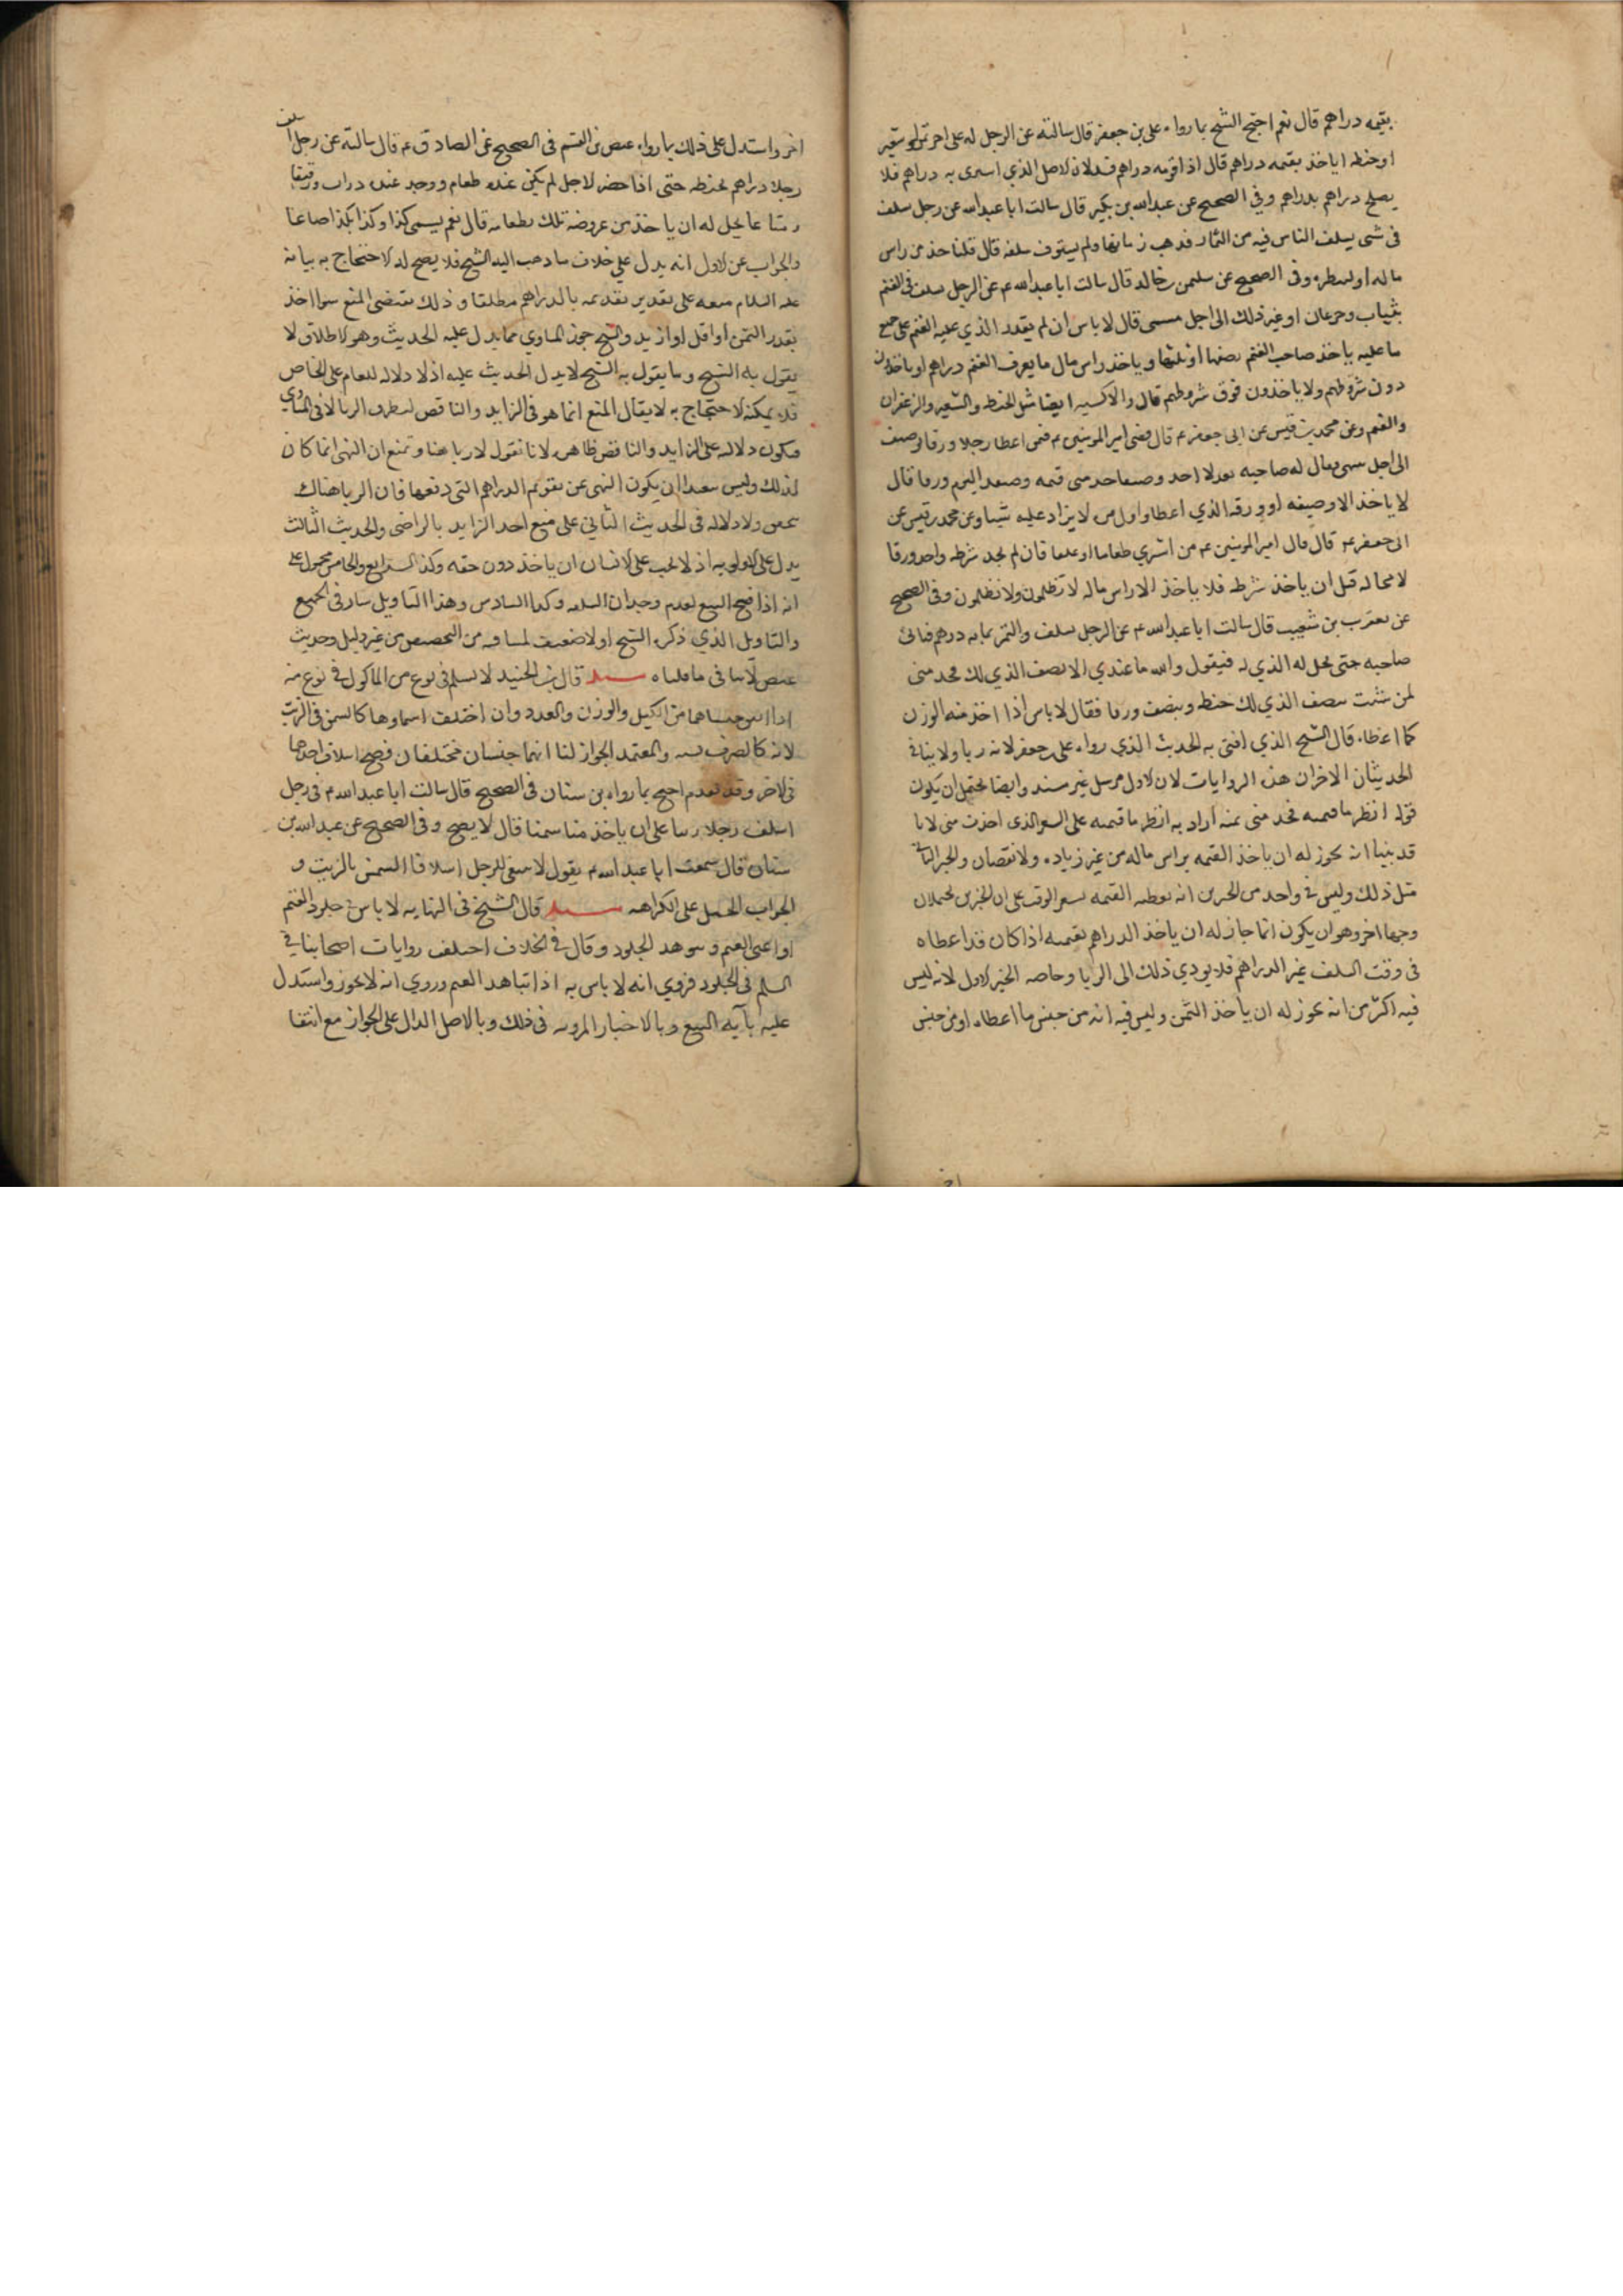 بقيمه دراهم قال نعم احتج الشيخ بما رواه علي بن جعفر قال سالته عن الرجل له على اخر تمر او شعير
او حنطه اياخذ بقيمته دراهم قال اذا قومه دراهم فسد لان الاصل الذي اشترى به دراهم فلا
يصلح دراهم بدراهم وفي الصحيح عن عبدالله بن بكير قال سالت ابا عبدالله عن رجل سلف
في شى يسلف الناس فيه من الثمار فذهب زمانها ولم يستوف سلفه قال فلياخذ من راس
ماله او لينظره وفي الصحيح عن سليمن بن خالد قال سالت ابا عبدالله ع عن الرجل يسلف في الغنم
بثياب وجذعان او غير ذلك الى اجل مسمى قال لا باس ان لم يقدر الذي عليه الغنم على جميع
ما عليه ياخذ صاحب الغنم نصفها او ثلثها وياخذ راس مال ما بقي من الغنم دراهم او ياخذون
دون شروطهم ولا ياخذون فوق شروطهم قال والاكسيه ايضا مثل الحنطه والشعير والزعفران
والغنم وعن محمد بن قيس عن ابى جعفر ع قال قضى امير المومنين ع فمن اعطا رجلا ورقا وصيف
الى اجل مسمى فقال له صاحبه بعد لا اجد وصيفا خذ منى قيمه وصيفك اليوم ورقا قال
لا ياخذ الا وصيفه او ورقه الذي اعطاه اول مره لا يزاد عليه شيا وعن محمد بن قيس عن
ابى جعفر ع قال قال امير المومنين ع من اشترى طعاما او علفا فان لم يجد شرطه واخذ ورقا
لا محاله قبل ان ياخذ شرطه فلا ياخذ الا راس ماله لا تظلمون ولا تظلمون وفى الصحيح
عن يعقوب بن شعيب قال سالت ابا عبدالله ع عن الرجل يسلف والتمر بمايه درهم فياتى
صاحبه حتى يحل له الذي له فيقول والله ما عندي الا نصف الذي لك فخذ منى
لمن شئت بنصف الذي لك حنطه وبنصف ورقا فقال لا باس اذا اخذ منه الورق
كما اعطاه قال الشيخ الذي افتى به الحديث الذي رواه على بن جعفر لانه ربا ولا ينافي
الحديثان الاخران هذه الروايات لان الاول مرسل غير مسند وايضا يحتمل ان يكون
قوله انظر ما قيمته فخذ منى ثمنه اراد به انظر ما قيمته على السعر الذى اخذت منى لانا
قد بينا انه يجوز له ان ياخذ القيمه براس ماله من غير زياده ولا نقصان والخبر الثاني
مثل ذلك وليس في واحد من الخبرين انه يعطيه القيمه بسعر الوقت على ان الخبرين يحتملان
وجها اخر وهو ان يكون انما جاز له ان ياخذ الدراهم بقيمته اذا كان قد اعطاه
فى وقت السلف غير الدراهم فلا يودي ذلك الى الربا وخاصه الخبر الاول لانه ليس
فيه اكثر من انه يجوز له ان ياخذ الثمن وليس فيه انه من جنس ما اعطاه او من جنس
اخر واستدل على ذلك بما رواه عيص بن القسم فى الصحيح عن الصادق ع قال سالته عن رجل اسلف
رجلا دراهم بحنطه حتى اذا حضر الاجل لم يكن عنده طعام ووجد عنده دواب ورقيقا
ومتاعا يحل له ان ياخذ من عروضه تلك بطعامه قال نعم يسمى كذا وكذا بكذا صاعا
والجواب عن الاول انه يدل على خلاف ما ذهب اليه الشيخ فلا يصح له الاحتجاج به بيانه
عليه السلام منعه على تقدير تقديمه بالدراهم مطلقا وذلك يقتضى المنع سوا اخذ
بقدر الثمن او اقل او ازيد والشيخ جوز المساوي فما يدل عليه الحديث وهو الاطلاق لا
يقول به الشيخ وما يقول به الشيخ لا يدل الحديث عليه اذ لا دلاله للعام على الخاص
فلا يمكنه الاحتجاج به لا يقال المنع انما هو فى الزايد والناقص لتطرق الربا لا فى المساوي
فيكون دلاله على الزايد والناقص ظاهره لانا نقول لا ربا هنا ونمنع ان النهى انما كان
لذلك وليس ببعيد ان يكون النهى عن تقويم الدراهم التى دفعها فان الربا هناك
يتحقق ولا دلاله فى الحديث الثاني على منع اخذ الزايد بالتراضى والحديث الثالث
يدل على الاولويه اذ لا يجب على الانسان ان ياخذ دون حقه وكذا الرابع والخامس محمول على
انه اذا فسخ البيع لعدم وجدان السلعه وكذا السادس وهذا التاويل سار فى الجميع
والتاويل الذي ذكره الشيخ اولا ضعيف لما فيه من التخصيص من غير دليل وحديث
عيص لا ينافى ما قلناه مسله قال ابن الجنيد لا يسلم فى نوع من الماكول في نوع منه
اذا اتفق جنساهما من الكيل والوزن والعدد وان اختلفت اسماوها كالسمن في الزيت
لانه كالصرف نسيه والمعتمد الجواز لنا انهما جنسان مختلفان فصح اسلاف احدهما
فى الاخر وقد تقدم احتج بما رواه بن سنان فى الصحيح قال سالت ابا عبدالله ع فى رجل
اسلف رجلا زيتا على ان ياخذ منه سمنا قال لا يصح وفى الصحيح عن عبد الله بن
سنان قال سمعت ابا عبدالله ع يقول لا ينبغى للرجل اسلاف السمن بالزيت و
الجواب الحمل على الكراهه مسله قال الشيخ فى النهايه لا باس في جلود الغنم
اذا عين الغنم وشوهد الجلود وقال في الخلاف اختلف روايات اصحابنا في
السلم فى الجلود فروي انه لا باس به اذا شاهد الغنم وروي انه لا يجوز واستدل
عليه بآيه البيع وبالاخبار المرويه فى ذلك وبالاصل الدال على الجواز مع انتفا